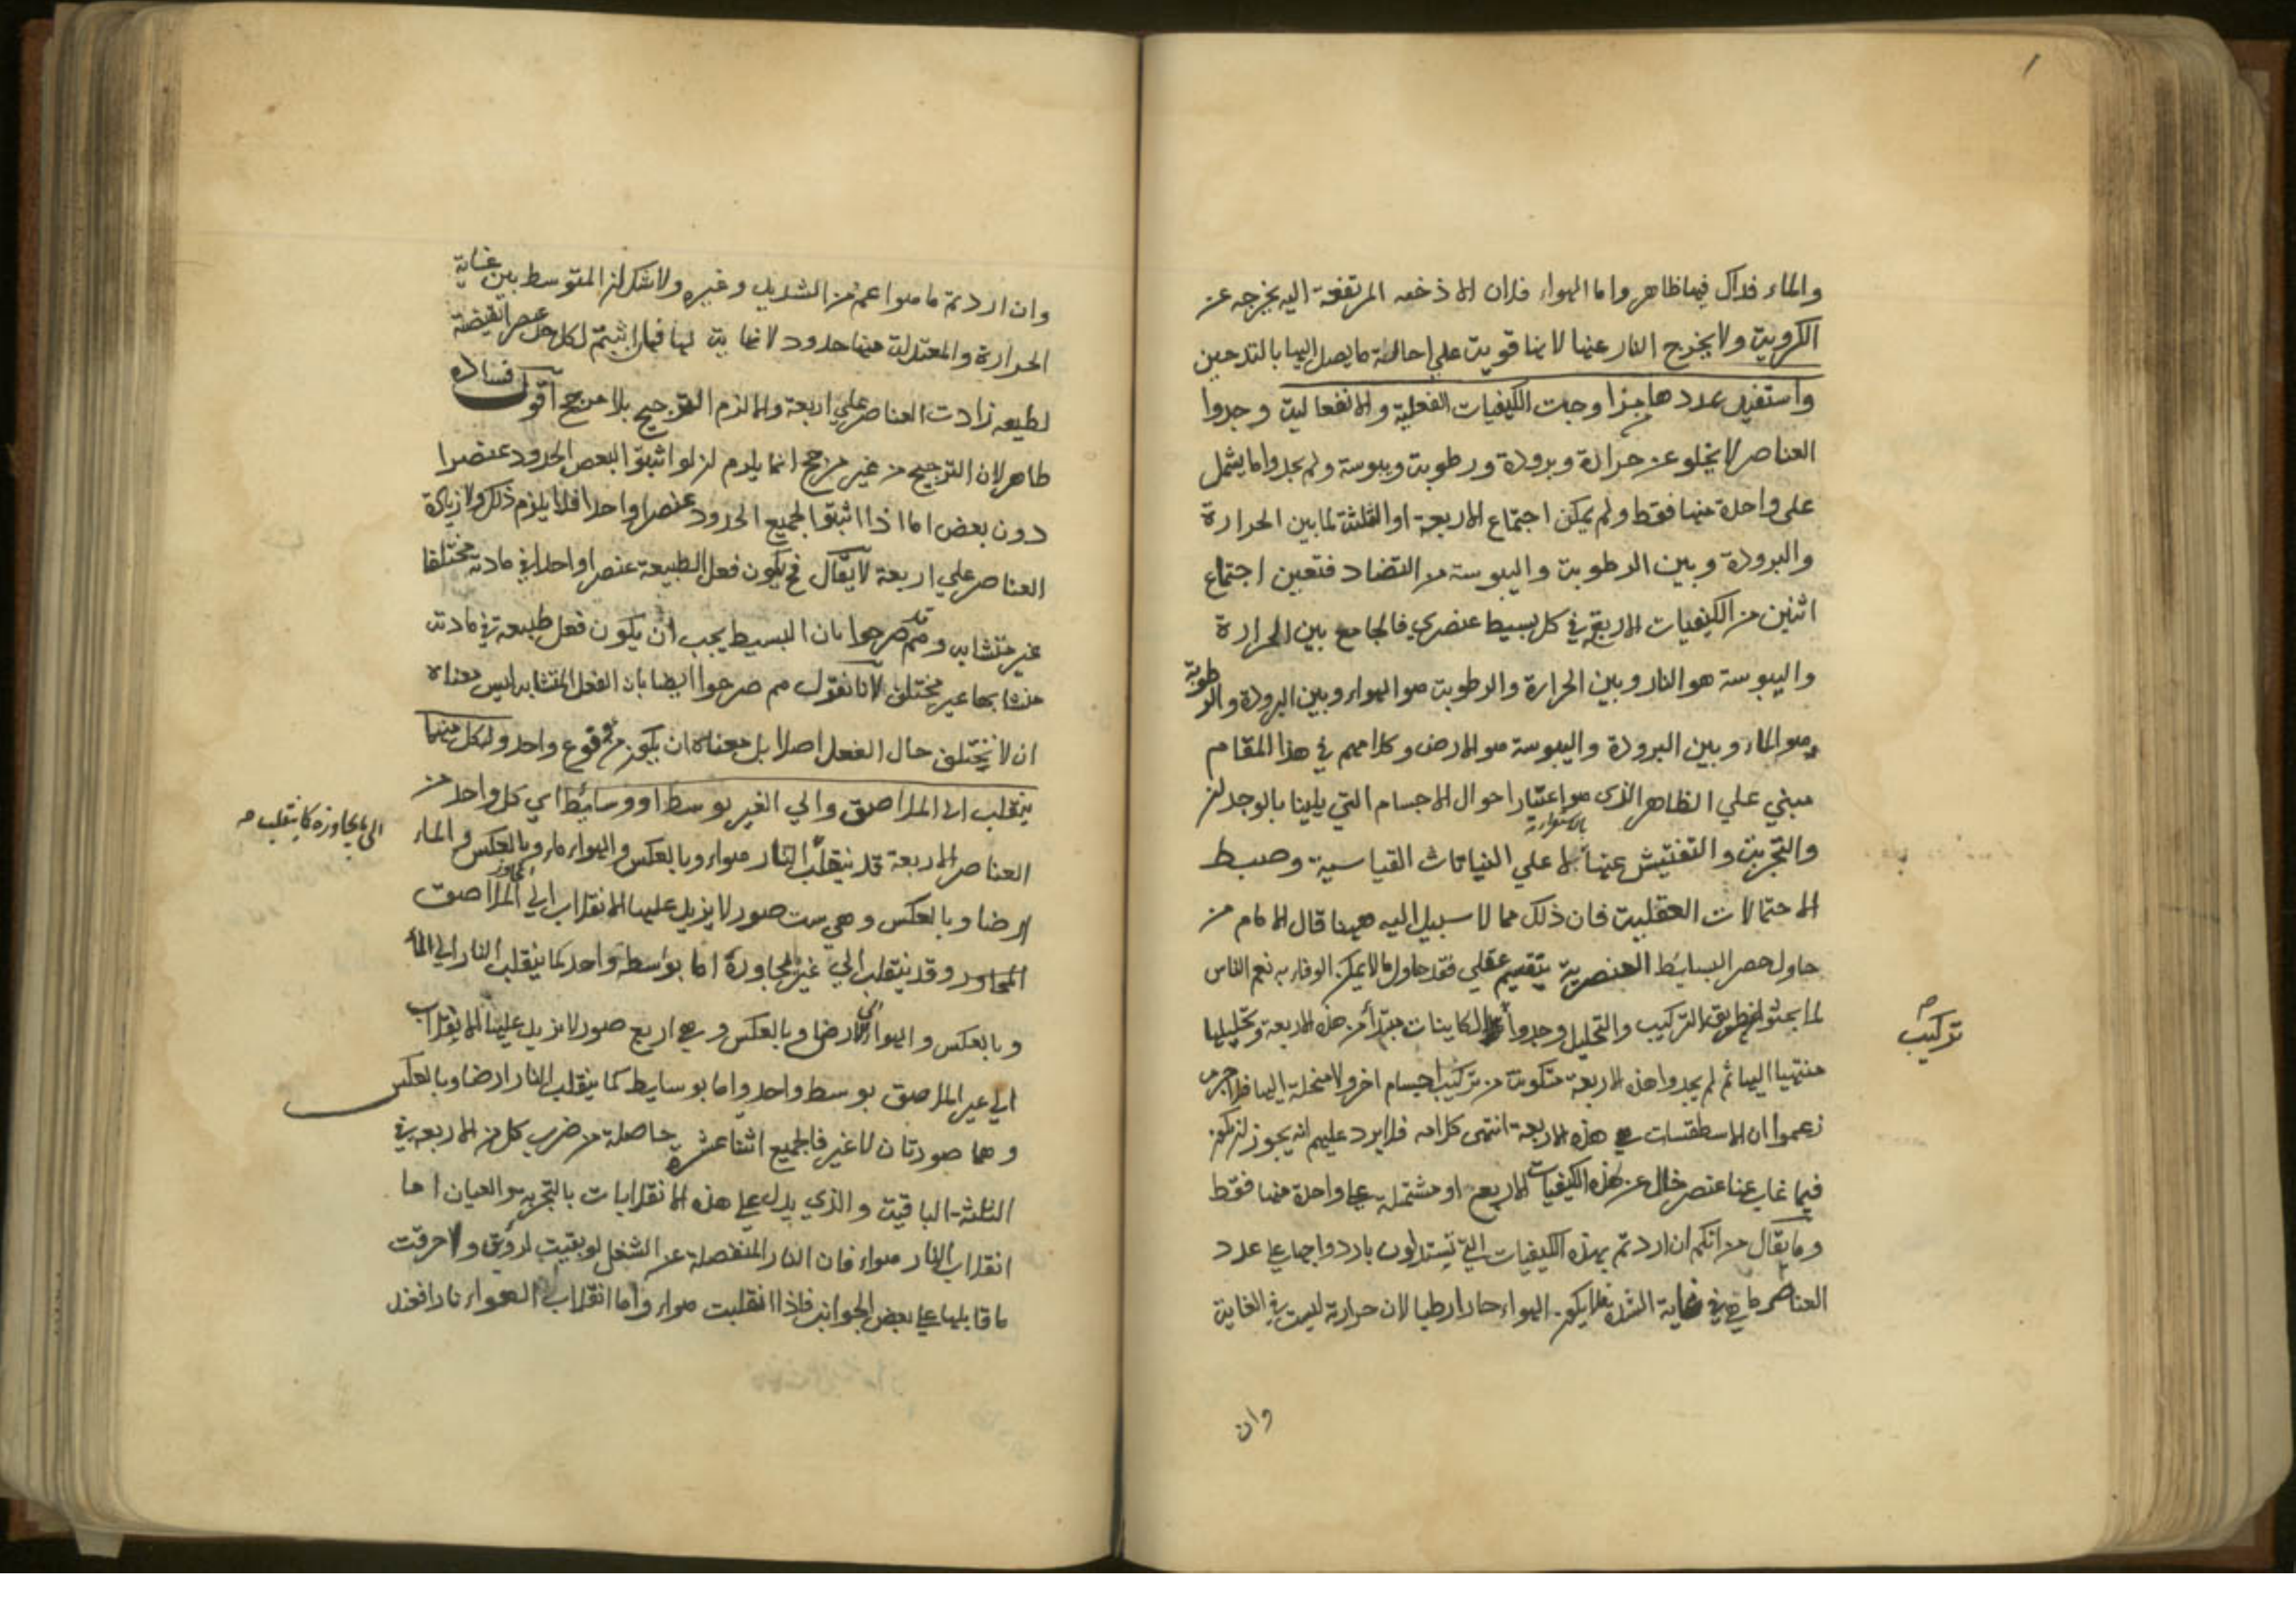 والماء فذاك فيها ظاهر واما الهواء فلان الادخنه المرتفعة اليه يخرجه عن
الكروية ولا يخرج النار عنها لانها قوية علي احالة ما يصل اليها بالتدخين
واستفيد عددها من ازدواجات الكيفيات الفعلية والانفعالية وجدوا
العناصر لا يخلو عن حرارة وبرودة ورطوبة ويبوسة ولم يجدوا ما يشمل
على واحدة منها فقط ولم يمكن اجتماع الاربعة او الثلثة لما بين الحرارة
والبرودة وبين الرطوبة واليبوسة من التضاد فتعين اجتماع
اثنين من الكيفيات الاربع في كل بسيط عنصري فالجامع بين الحرارة
واليبوسة هو النار وبين الحرارة والرطوبة هو الهواء وبين البرودة والرطوبة
هو الماء وبين البرودة واليبوسة هو الارض وكلامهم في هذا المقام
مبني علي الظاهر الذى هو اعتبار احوال الاجسام التي يلينا بالوجدان
والتجربة والتفتيش عنها بالاستقراء لا علي البيانات القياسية وضبط
الاحتمالات العقلية فان ذلك مما لا سبيل اليه ههنا قال الامام من
حاول حصر البسائط العنصرية بتقسيم عقلي فقد حاول ما لا يمكن الوفاء به نعم الناس
لما بحثوا بطريق التركيب والتحليل وجدوا تركيب الكاينات مبتدأ من هذه الاربعة وتحليلها
منتهيا اليها ثم لم يجدوا هذه الاربعة متكونة من تركيب اجسام اخر ولا منحلة اليها فلا جرم
زعموا ان الاسطقسات هي هذه الاربعة انتهى كلامه فلا يرد عليهم انه يجوز ان يكون
فيما غاب عنا عنصر خال عن هذه الكيفيات الاربع او مشتملة على واحدة منها فقط
وما يقال من انكم ان اردتم بهذه الكيفيات التي تستدلون بازدواجها على عدد
العناصر ما هي في غاية الشدة فلا يكون الهواء حارا رطبا لان حرارته ليست في الغاية
تركيب
وان
وان اردتم ما هو اعم من الشديد وغيره ولا شك ان المتوسط بين غاية
الحرارة والمعتدلة منها حدود لا نهاية لها فان اثبتم لكل حد عنصرا يقتضيه
لطبيعه زادت العناصر علي اربعة والا لزم الترجيح بلا مرجح اقول فساده
ظاهر لان الترجيح من غير مرجح انما يلزم ان لو اثبتوا لبعض الحدود عنصرا
دون بعض اما اذا اثبتوا لجميع الحدود عنصرا واحدا فلا يلزم ذلك ولا زيادة
العناصر علي اربعة لا يقال فح يكون فعل الطبيعة عنصرا واحدا في مادته مختلفا
غير متشابه وهم قد صرحوا بان البسيط يجب ان يكون فعل طبيعة في مادته
متشابها غير مختلف لانا نقول هم صرحوا ايضا بان الفعل المتشابه ليس معناه
ان لا يختلف حال الفعل اصلا بل معناه ان يكون من نوع واحد ولكل منهما
ينقلب الى الملاصق والي الغير بوسط او وسائط اي كل واحد من
العناصر الاربعة قد ينقلب الى ما يجاوره كما ينقلب النار هواء وبالعكس والهواء ماء وبالعكس والماء
ارضا وبالعكس وهي ست صور لا يزيد عليها الانقلاب الي الملاصق
المجاور وقد ينقلب الي غير مجاوره اما بوسط واحد كما ينقلب النار الي الماء
وبالعكس والهواء الى الارض وبالعكس وهي اربع صور لا يزيد عليها الانقلاب
الي غير الملاصق بوسط واحد واما بوسايط كما ينقلب النار ارضا وبالعكس
وهما صورتان لا غير فالجميع اثنا عشرة حاصلة من ضرب كل من الاربعة في
الثلثة الباقية والذي يدل علي هذه الانقلابات بالتجربة والعيان اما
انقلاب النار هواء فان النار المنفصلة عن الشعل لو بقيت لرؤيت ولاحرقت
ما قابلها علي بعض الجوانب فاذا انقلبت هواء واما انقلاب الهواء نارا فعند